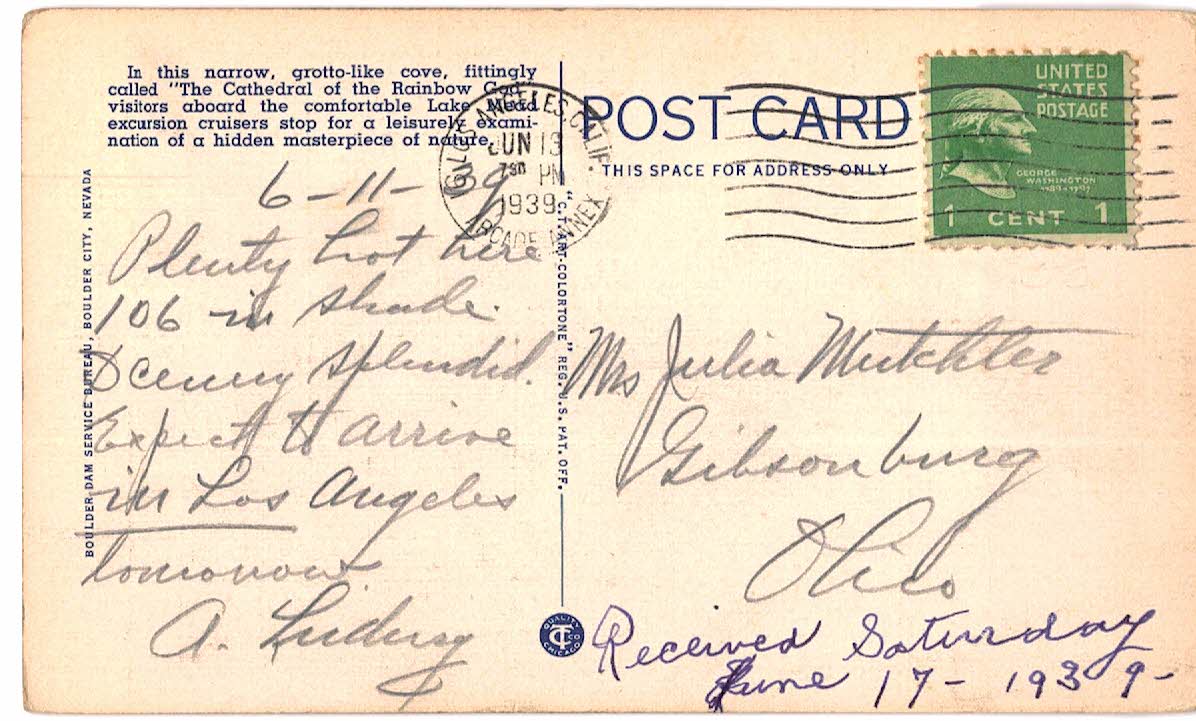 In this narrow, grotto-like cove, fittingly
called "The Cathedral of the Rainbow God"
visitors aboard the comfortable Lake Mead
excursion cruisers stop for a leisurely exami-
nation of a hidden masterpiece of nature.
BOULDER DAM SERVICE BUREAU, BOULDER CITY, NEVADA
6-11-39
Plenty hot here
106 in shade.
Scenery splendid.
Expect to arrive
in Los Angeles
tomorrow
A.
LOS ANGELES, CALIF.
JUN 13
730 PM
1939
ARCADE ANNEX
"C.T. ART-COLORTONE" REG. U.S. PAT. OFF.
QUALITY
CT CO
CHICAGO
POST CARD
THIS SPACE FOR ADDRESS ONLY
UNITED
STATES
POSTAGE
GEORGE
WASHINGTON
1789-1797
1 CENT 1
Mrs Julia Mutchler
Gibsonburg
Ohio
Received Saturday
June 17 - 1939-